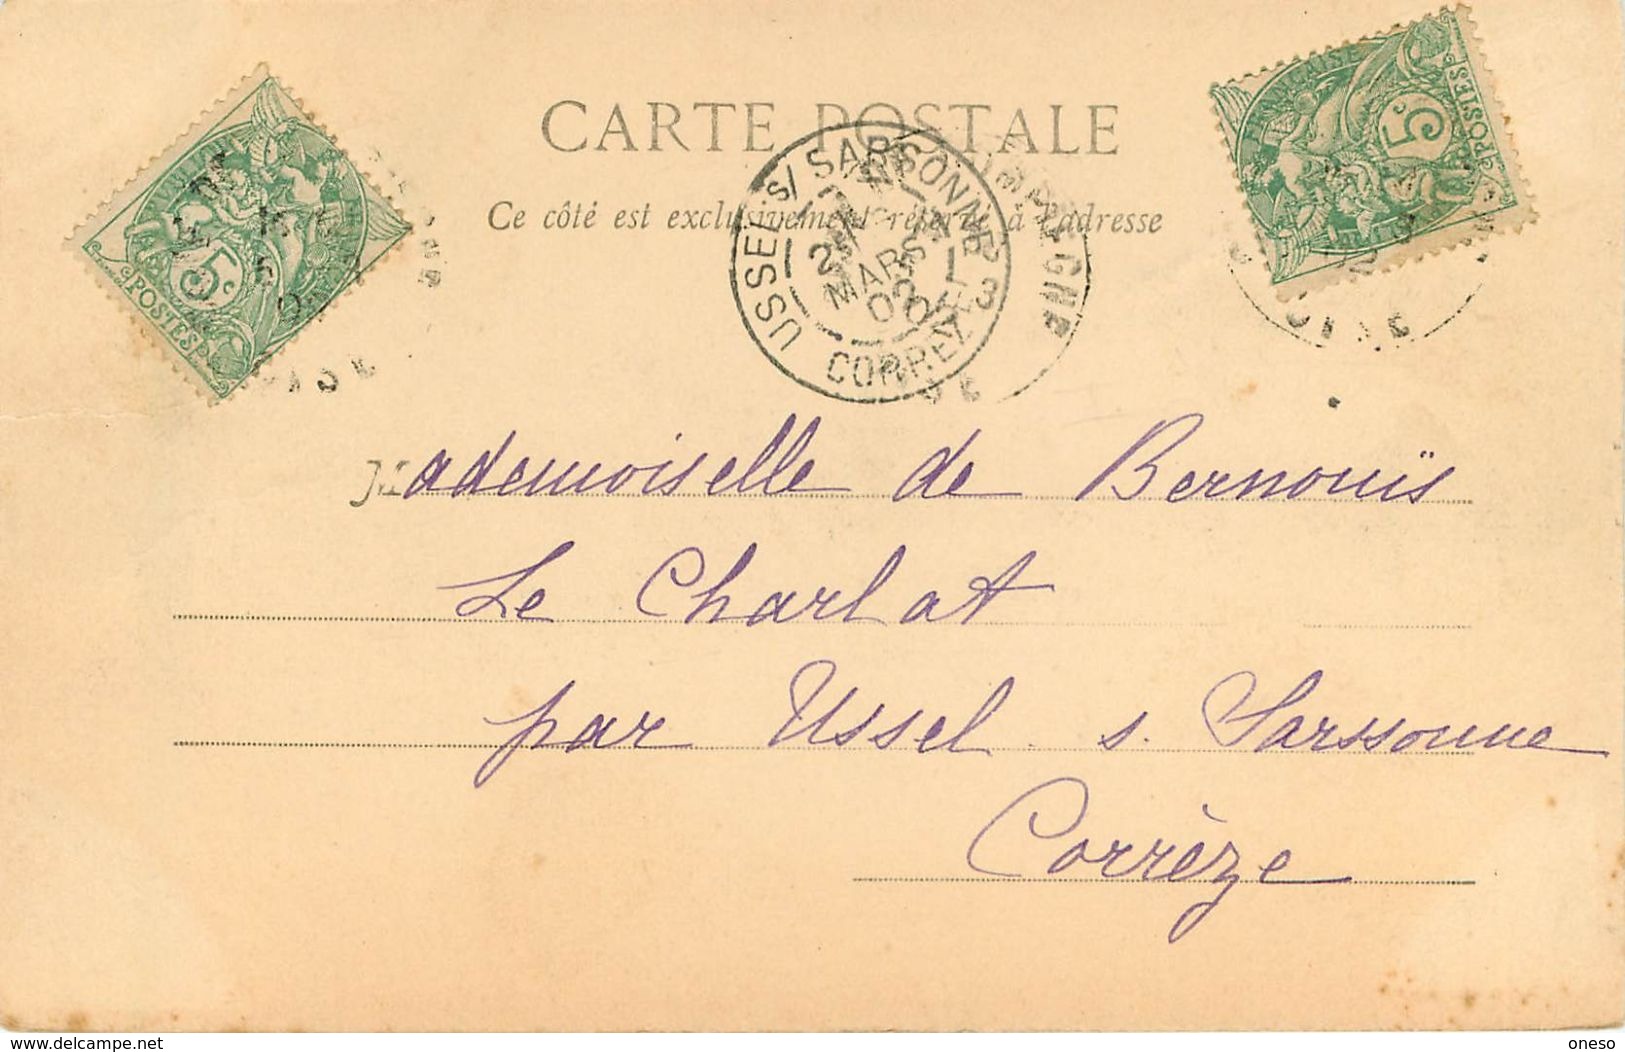 CARTE POSTALE
Ce côté est exclusivement réservé à l'adresse
5c
POSTES
5c
POSTES
USSEL S/ SARSONNE
MARS
CORRÈZE
OISE
Mademoiselle de
Le Charlat
par Ussel s. Sarssonne
Corrèze
www.delcampe.net
oneso